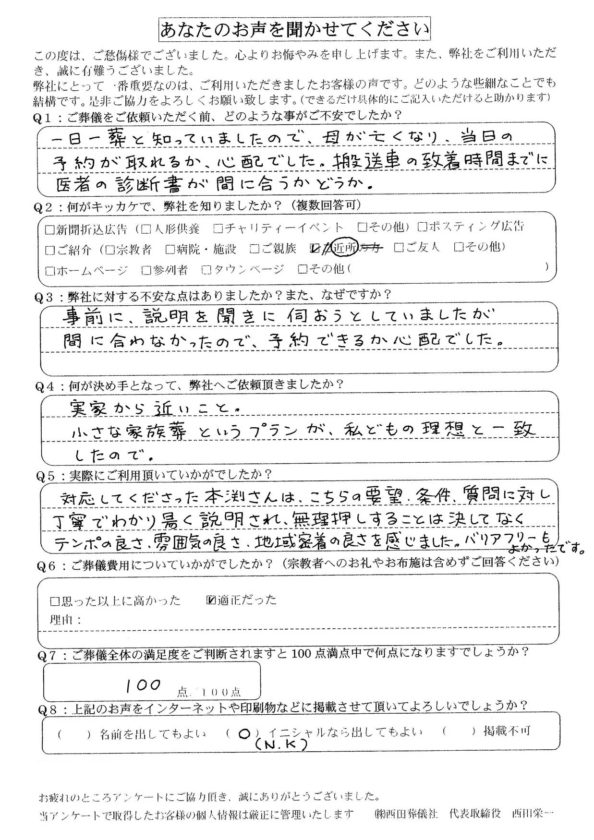 あなたのお声を聞かせてください
この度は、ご愁傷様でございました。心よりお悔やみを申し上げます。また、弊社をご利用いただ
き、誠に有難うございました。
弊社にとって一番重要なのは、ご利用いただきましたお客様の声です。どのような些細なことでも
結構です。是非ご協力をよろしくお願い致します。(できるだけ具体的にご記入いただけると助かります)
Q1:ご葬儀をご依頼いただく前、どのような事がご不安でしたか?
一日一葬と知っていましたので、母が亡くなり、当日の
予約が取れるか、心配でした。搬送車の致着時間までに
医者の診断書が間に合うかどうか。
Q2:何がキッカケで、弊社を知りましたか?(複数回答可)
□新聞折込広告(□人形供養 □チャリティーイベント □その他)□ポスティング広告
□ご紹介(□宗教者 □病院・施設 □ご親族 ☑近所 □ご友人 □その他)
□ホームページ □参列者 □タウンページ □その他( )
Q3:弊社に対する不安な点はありましたか?また、なぜですか?
事前に、説明を聞きに伺おうとしていましたが
間に合わなかったので、予約できるか心配でした。
Q4:何が決め手となって、弊社へご依頼頂きましたか?
実家から近いこと。
小さな家族葬というプランが、私どもの理想と一致
したので。
Q5:実際にご利用頂いていかがでしたか?
対応してくださった本渕さんは、こちらの要望、条件、質問に対し
丁寧でわかり易く説明され、無理押しすることは決してなく
テンポの良さ、雰囲気の良さ、地域密着の良さを感じました。バリアフリーも
よかったです。
Q6:ご葬儀費用についていかがでしたか?(宗教者へのお礼やお布施は含めずご回答ください)
□思った以上に高かった ☑適正だった
理由:
Q7:ご葬儀全体の満足度をご判断されますと100点満点中で何点になりますでしょうか?
100 点/100点
Q8:上記のお声をインターネットや印刷物などに掲載させて頂いてよろしいでしょうか?
( )名前を出してもよい (○)イニシャルなら出してもよい ( )掲載不可
(N.K)
お疲れのところアンケートにご協力頂き、誠にありがとうございました。
当アンケートで取得したお客様の個人情報は厳正に管理いたします ㈱西田葬儀社 代表取締役 西田栄一